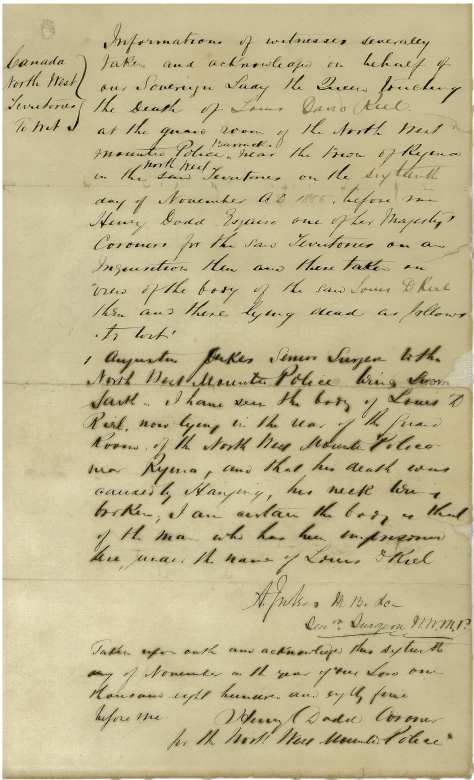 Canada
North West
Territories
To Wit
Informations of witnesses severally
taken and acknowledged on behalf of
our Sovereign Lady the Queen touching
the Death of Louis David Riel
at the guard room of the North West
Mounted Police Barracks near the town of Regina
in the said North West Territories on the sixteenth
day of November A.D 1885, before me
Henry Dodd Esquire one of her Majesty's
Coroners for the said Territories on an
Inquisition then and there taken on
view of the body of the said Louis D Riel
then and there lying dead as follows
to wit
1 Augustus Jukes Senior Surgeon to the
North West Mounted Police being sworn
saith I have seen the body of Louis D
Riel, now lying in the rear of the Guard
Room of the North West Mounted Police
near Regina, and that his death was
caused by Hanging, his neck being
broken, I am certain the body is that
of the man who has been imprisoned
here under the name of Louis D Riel
A Jukes M.B. &c
Senr. Surgeon N.W.M.P.
Taken upon oath and acknowledged this sixteenth
day of November in the year of our Lord one
thousand eight hundred and eighty five
before me Henry Dodd Coroner
for the North West Mounted Police